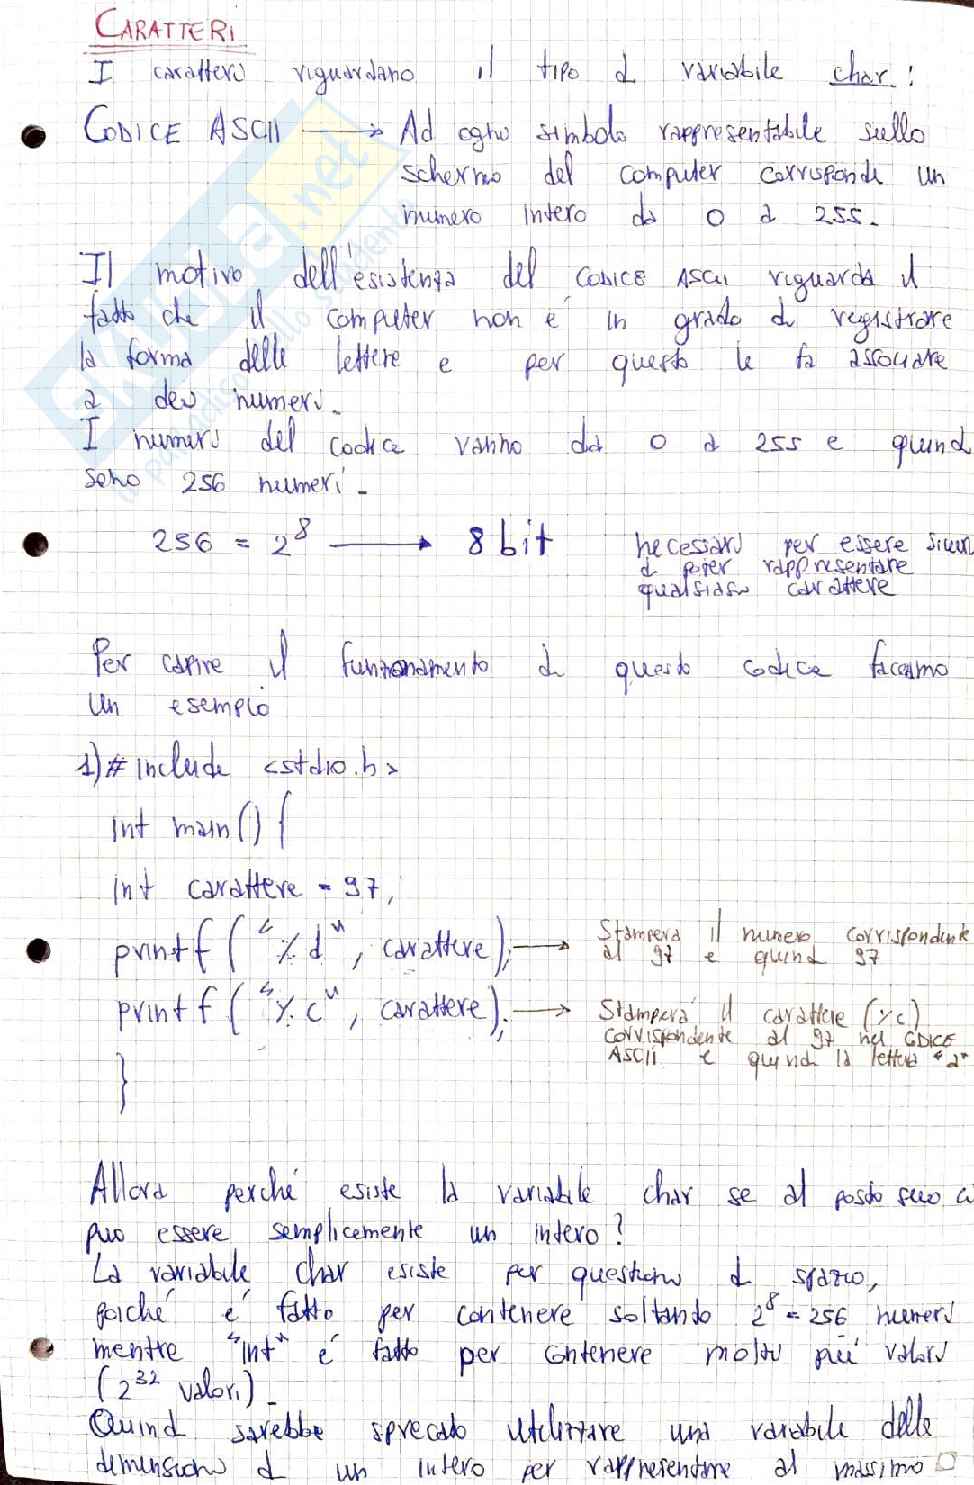 CARATTERI
I caratteri riguardano il tipo di variabile char:
CODICE ASCII → Ad ogni simbolo rappresentabile sullo
schermo del computer corrisponde un
numero intero da 0 a 255.
Il motivo dell'esistenza del CODICE ASCII riguarda il
fatto che il computer non è in grado di registrare
la forma delle lettere e per questo le fa associare
a dei numeri.
I numeri del codice vanno da 0 a 255 e quindi
sono 256 numeri.
256 = 2^8 → 8 bit necessari per essere sicuri
di poter rappresentare
qualsiasi carattere
Per capire il funzionamento di questo codice facciamo
un esempio
1) #include <stdio.h>
int main() {
int carattere = 97;
printf ("%d", carattere); → Stamperà il numero corrispondente
al 97 e quindi 97
printf ("%c", carattere); → Stamperà il carattere (%c)
corrispondente al 97 nel CODICE
ASCII e quindi la lettera "a"
}
Allora perché esiste la variabile char se al posto suo ci
può essere semplicemente un intero?
La variabile char esiste per questioni di spazio,
poiché è fatto per contenere soltando 2^8 = 256 numeri
mentre "int" è fatto per contenere molti più valori
(2^32 valori).
Quindi sarebbe sprecato utilizzare una variabile delle
dimensioni di un intero per rappresentare al massimo
skuola.net